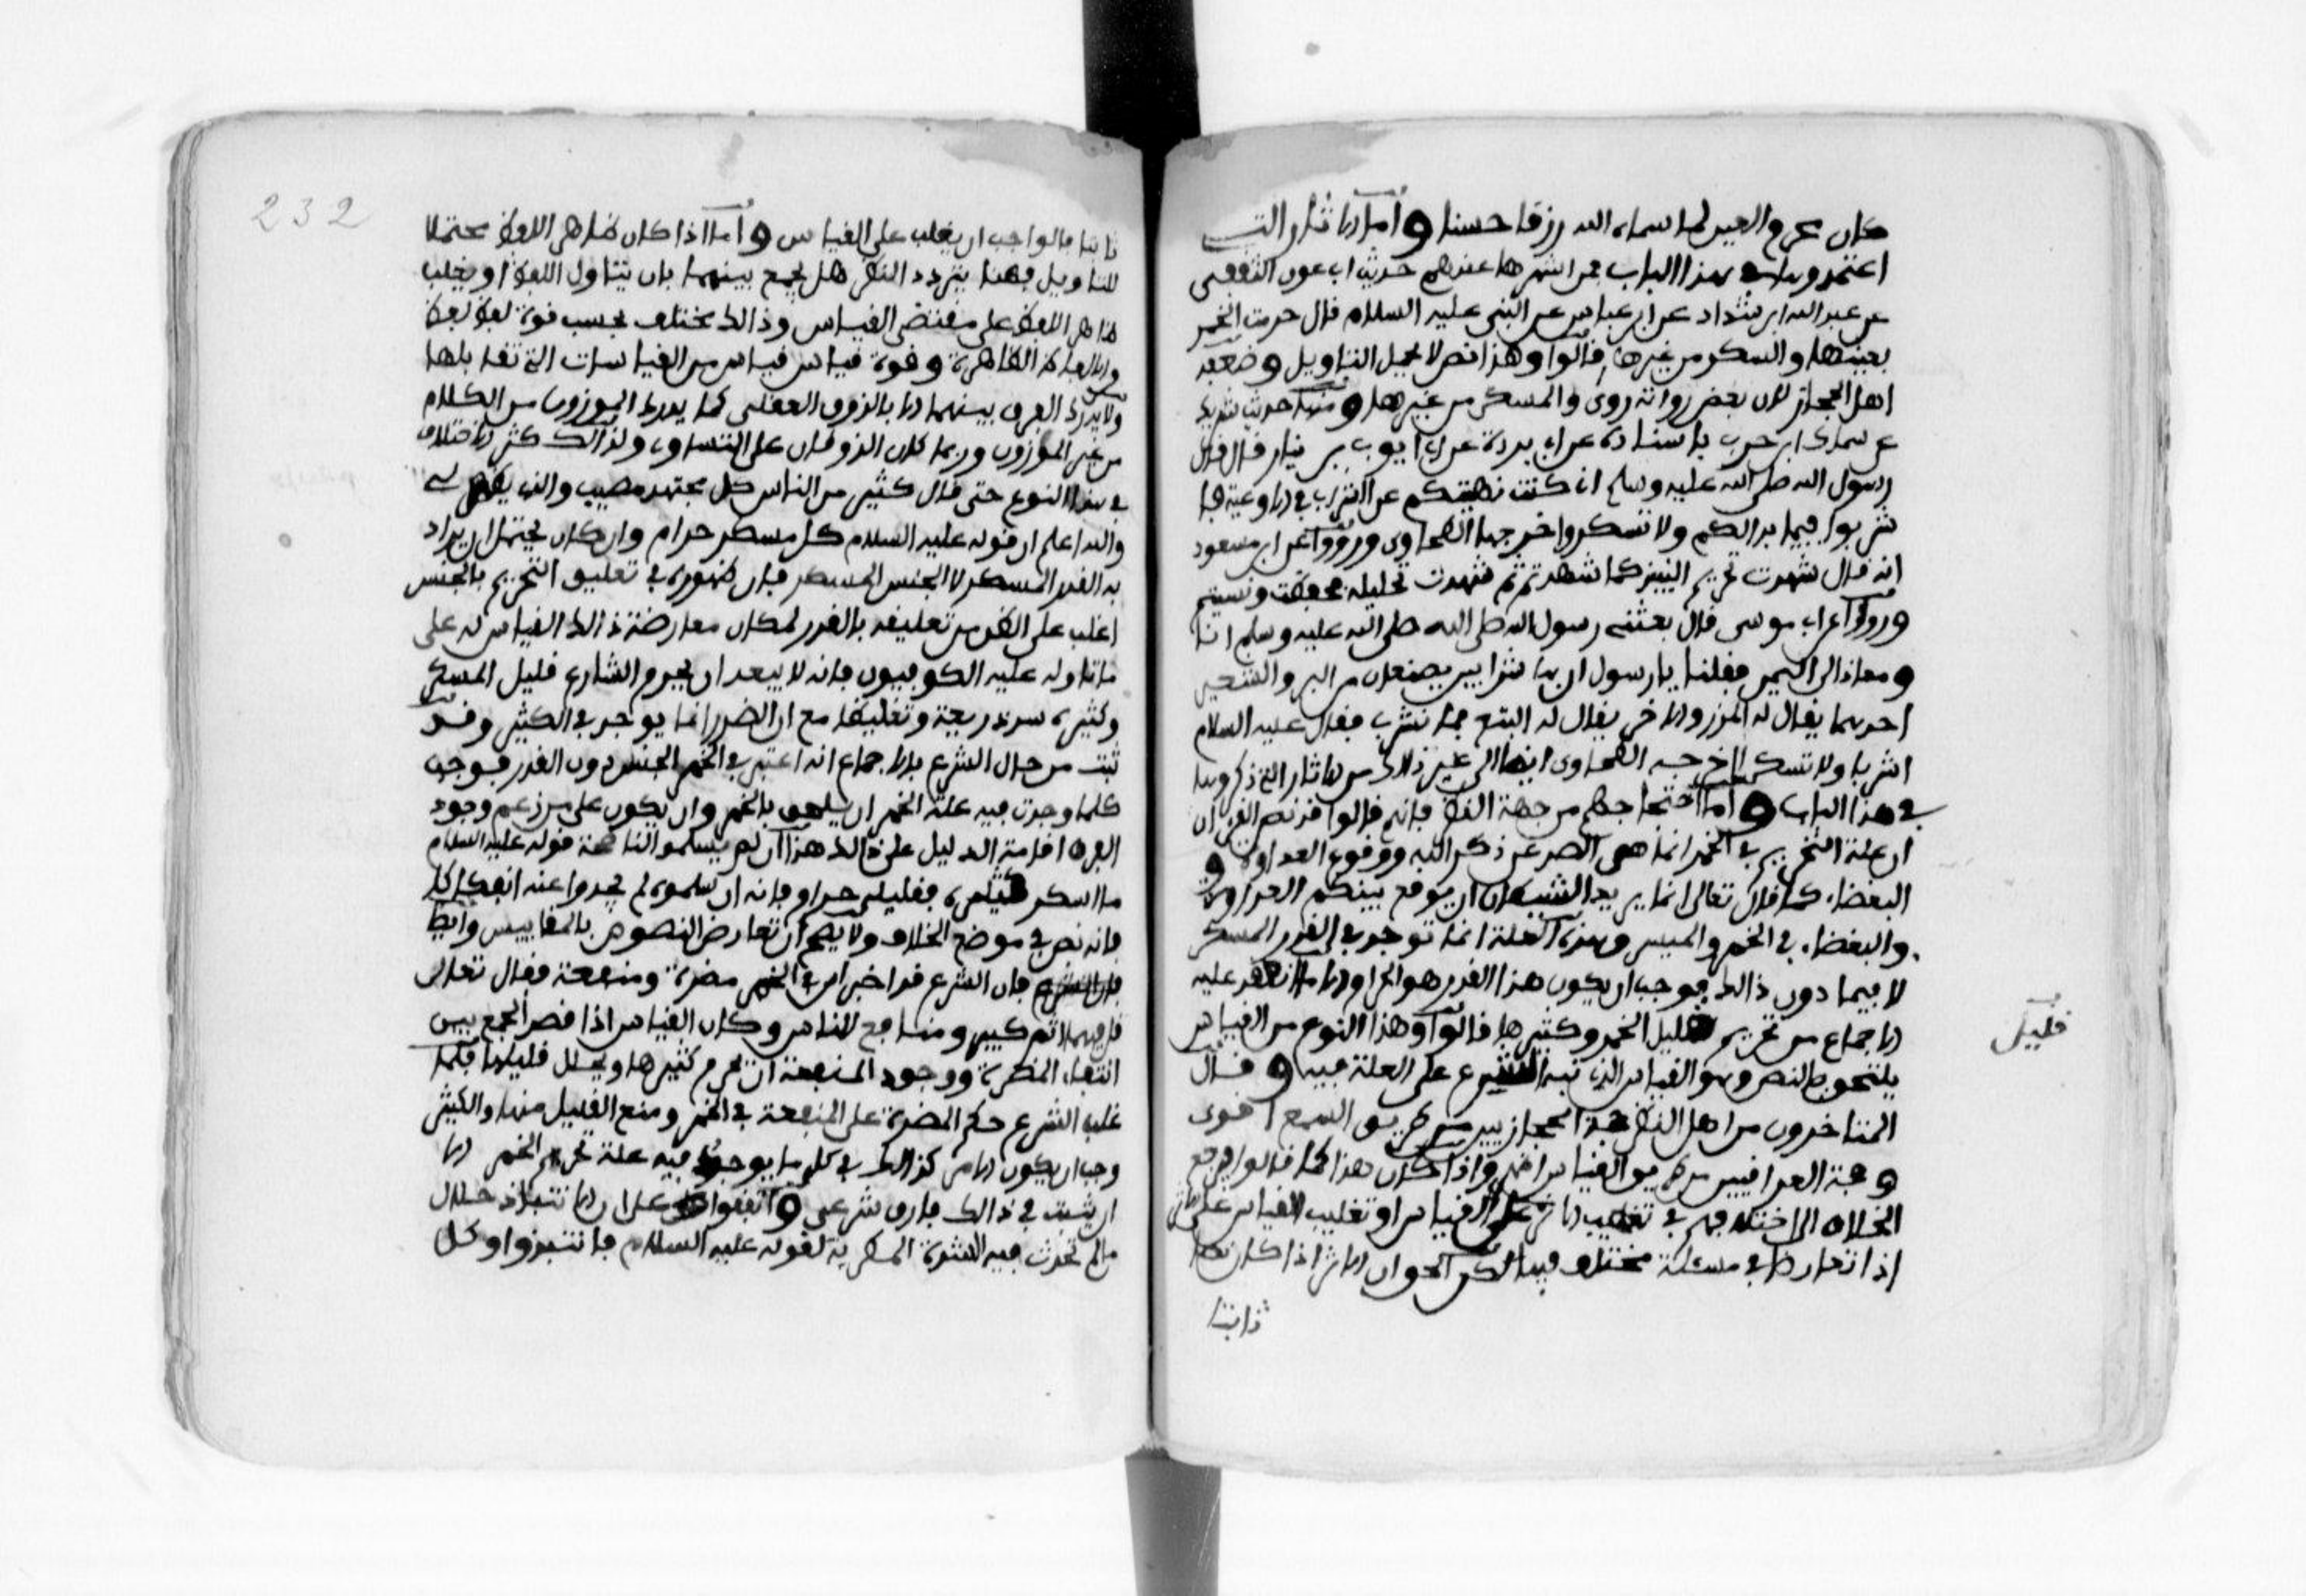 كان محرم العين لما سماه الله رزقا حسنا وأما الاثار التي
اعتمدوها في هذا الباب فمن اشهرها عندهم حديث ابي عون الثقفي
عن عبد الله ابن شداد عن ابن عباس عن النبي عليه السلام قال حرمت الخمر
بعينها والسكر من غيرها قالوا وهذا نص لا يحتمل التاويل وضعفه
اهل الحجاز لان بعض رواته روى والمسكر من غيرها ومنها حديث شريك
عن سماك ابن حرب باسناده عن ابي بردة عن ابي ايوب بن نيار قال قال
رسول الله صلى الله عليه وسلم اني كنت نهيتكم عن الشراب في الاوعية فا
شربوا فيما بدا لكم ولا تسكروا خرجها الطحاوي ورووا عن ابن مسعود
انه قال شهدت تحريم النبيذ كما شهدتم ثم شهدت تحليله فحفظت ونسيتم
ورووا عن ابي موسى قال بعثني رسول الله صلى الله صلى الله عليه وسلم انا
ومعاذ الى اليمن فقلنا يا رسول ان بها شرابين يصنعان من البر والشعير
احدهما يقال له المزر والاخر يقال له البتع فما نشرب فقال عليه السلام
اشربا ولا تسكرا خرجه الطحاوي ايضا الى غير ذلك من الاثار التي ذكروها
في هذا الباب وأما احتجاجهم من جهة النظر فانهم قالوا قد نص القران
ان علة التحريم في الخمر انما هي الصد عن ذكر الله ووقوع العداوة و
البغضاء كما قال تعالى انما يريد الشيطان ان يوقع بينكم العداوة
والبغضاء في الخمر والميسر وهذه العلة انما توجد في القدر المسكر
لا فيما دون ذالك فوجب ان يكون هذا القدر هو الحرام الا ما انعقد عليه
الاجماع من تحريم قليل الخمر وكثيرها قالوا وهذا النوع من القياس
قليل
يلتحق بالنص وهو القياس الذي تبه الشرع على العلة فيه وقال
المتاخرون من اهل النظر حجة الحجازيين من طريق السمع اقوى
وحجة العراقيين من طريق القياس اظهر واذا كان هذا كما قالوا فيرجع
الخلاف الى اختلافهم في تغليب الاثر على القياس او تغليب القياس على الاثر
اذا تعارضا في مسئلة مختلف فيها لكن الحق ان الاثر اذا كان نصا
ثابتا
ثابتا فالواجب ان يغلب على القياس وأما اذا كان ظاهر اللفظ محتملا
للتاويل فهنا يتردد النظر هل يجمع بينهما بان يتناول اللفظ او يغلب
ظاهر اللفظ على مقتضى القياس وذالك مختلف بحسب قوة لفظ لفظ
من الالفاظ الظاهرة وقوة قياس قياس من القياسات التي تقابلها
ولا يدرك الفرق بينهما الا بالذوق العقلي كما يدرك الموزون من الكلام
من غير الموزون وربما كان الذوقان على التساوي ولذالك كثر الاختلاف
في هذا النوع حتى قال كثير من الناس كل مجتهد مصيب والذي يظهر لي
والله اعلم ان قوله عليه السلام كل مسكر حرام وان كان يحتمل ان يراد
به القدر المسكر لا الجنس المسكر فان ظهوره في تعليق التحريم بالجنس
اغلب على الظن من تعليقه بالقدر لمكان معارضة ذالك القياس له على
ما تاوله عليه الكوفيون فانه لا يبعد ان يحرم الشارع قليل المسكر
وكثيره سدا ذريعة وتغليظا مع ان الضرر انما يوجد في الكثير وقد
ثبت من حال الشرع بالاجماع انه اعتبر في الخمر الجنس دون القدر فوجب
كلما وجدت فيه علة الخمر ان يلحق بالخمر وان يكون على من زعم وجود
الفرق اقامة الدليل على ذالك هذا ان لم يسلموا لنا صحة قوله عليه السلام
ما اسكر كثيره فقليله حرام فانه ان سلموه لم يجدوا عنه انفكاكا
فانه نص في موضع الخلاف ولا يصح ان تعارض النصوص بالمقاييس وايضا
فان الشرع قد اخبر ان في الخمر مضرة ومنفعة فقال تعالى
قل فيهما اثم كبير ومنافع للناس وكان القياس اذا قصد الجمع بين
انتفاء المضرة ووجود المنفعة ان يحرم كثيرها ويحلل قليلها فلما
غلب الشرع حكم المضرة على المنفعة في الخمر ومنع القليل منها والكثير
وجب ان يكون الامر كذالك في كل ما يوجد فيه علة تحريم الخمر الا
ان يثبت في ذالك فارق شرعي واتفقوا على ان الانتباذ حلال
ما لم تحدث فيه الشدة المطربة لقوله عليه السلام فانتبذوا وكل
232